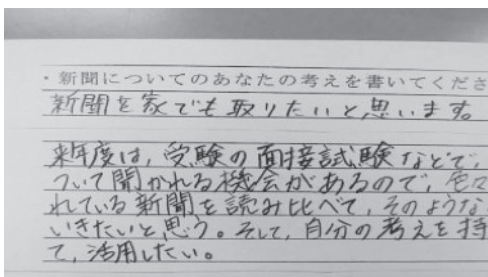 ・新聞についてのあなたの考えを書いてくださ
新聞を家でも取りたいと思います。
来年度は、受験の面接試験などで、
ついて聞かれる機会があるので、色々
れている新聞を読み比べて、そのような
いきたいと思う。そして、自分の考えを持
て、活用したい。